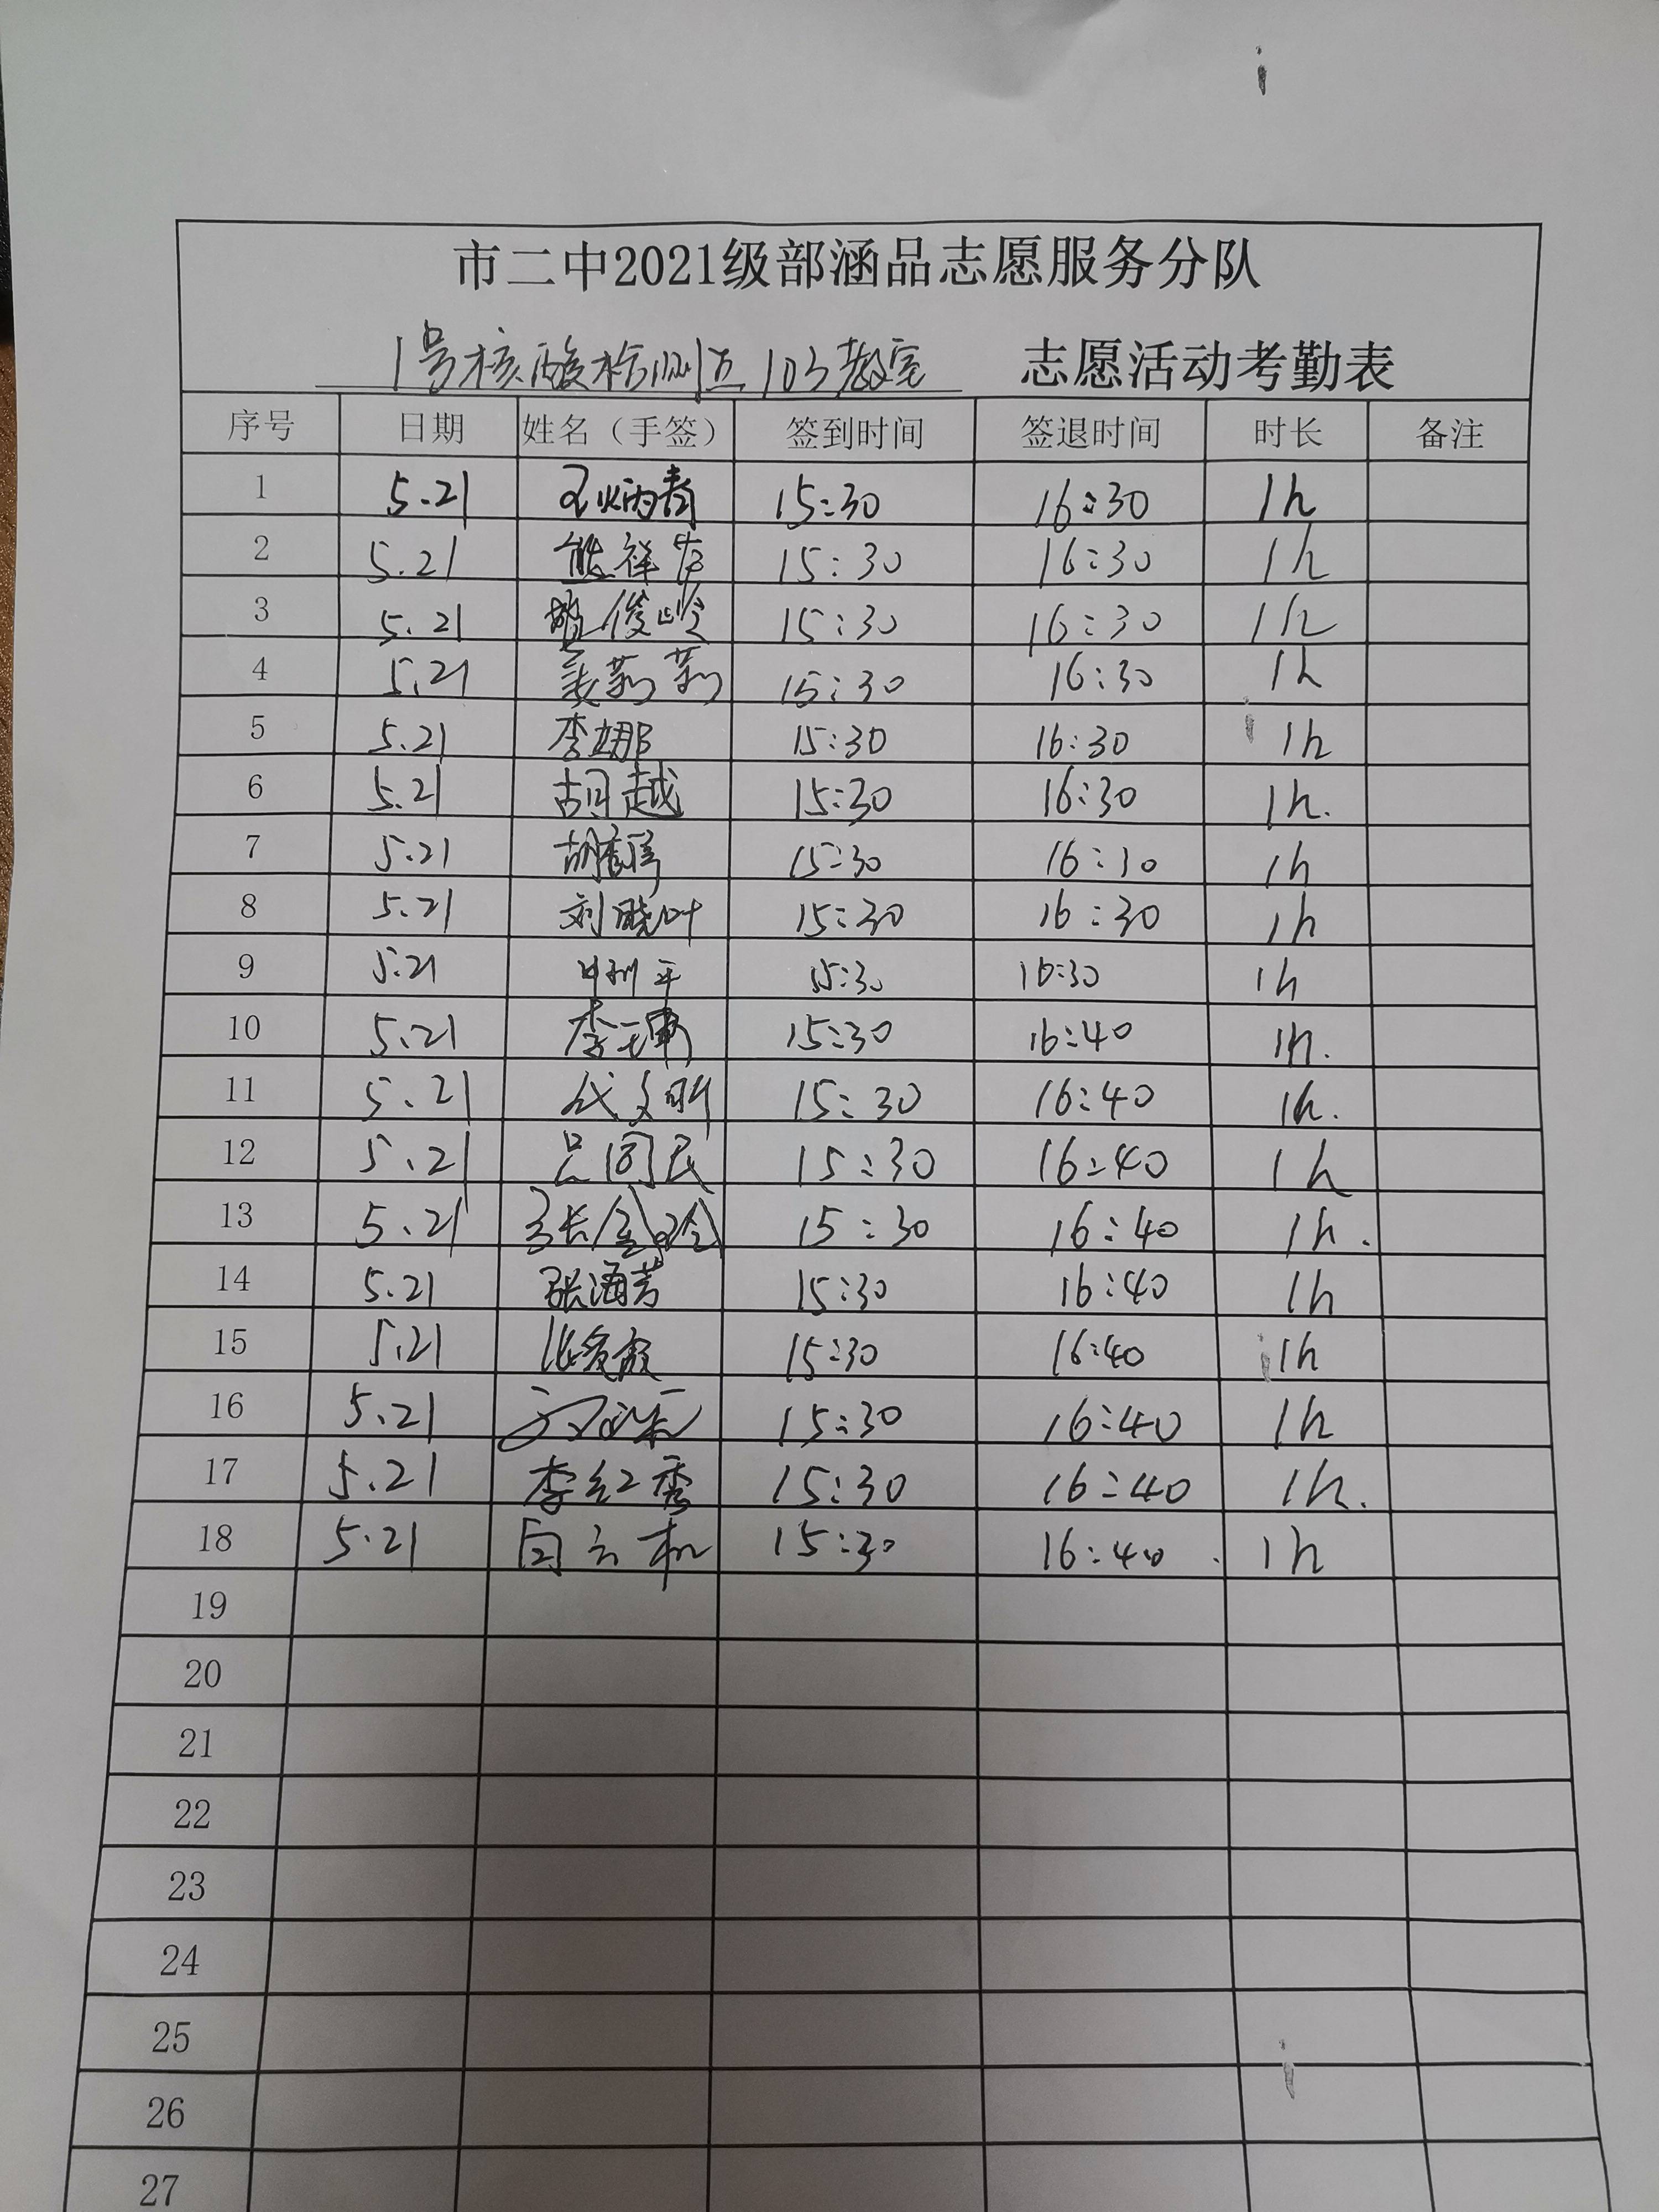 市二中2021级部涵品志愿服务分队
1号核酸检测点103教室 志愿活动考勤表
序号 日期 姓名（手签） 签到时间 签退时间 时长 备注
1 5.21 15:30 16:30 1h
2 5.21 15:30 16:30 1h
3 5.21 俊岭 15:30 16:30 1h
4 5.21 姜莉莉 15:30 16:30 1h
5 5.21 李娜 15:30 16:30 1h
6 5.21 胡越 15:30 16:30 1h.
7 5.21 15:30 16:30 1h
8 5.21 刘晓叶 15:30 16:30 1h
9 5.21 15:30 16:30 1h
10 5.21 15:30 16:40 1h.
11 5.21 代文明 15:30 16:40 1h.
12 5.21 吕同民 15:30 16:40 1h
13 5.21 张金玲 15:30 16:40 1h.
14 5.21 张海芳 15:30 16:40 1h
15 5.21 15:30 16:40 1h
16 5.21 15:30 16:40 1h
17 5.21 李红秀 15:30 16:40 1h.
18 5.21 15:30 16:40 1h
19
20
21
22
23
24
25
26
27